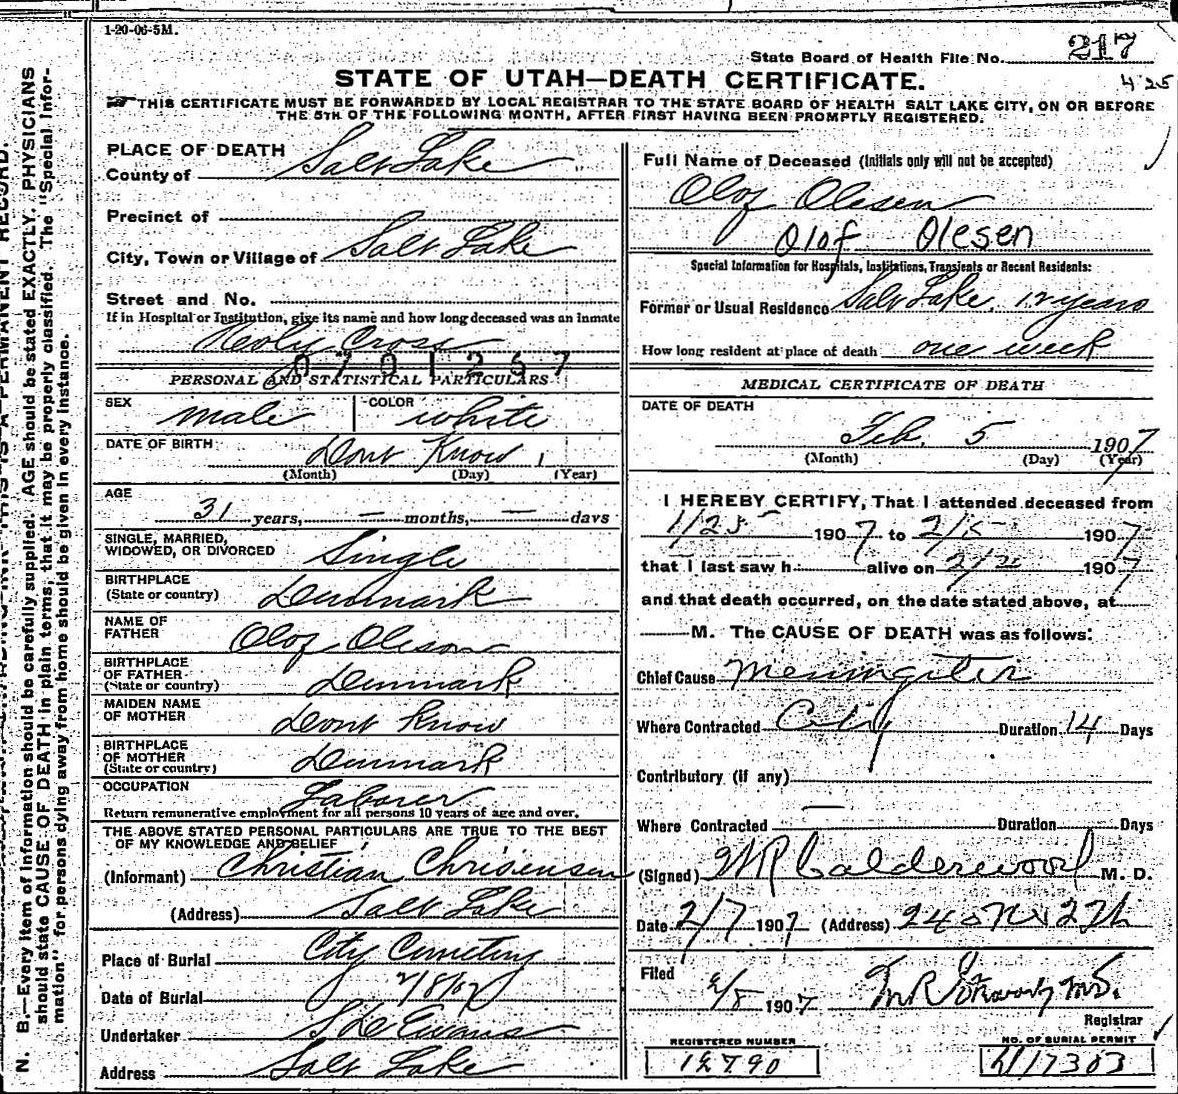 1-20-06-5M.
State Board of Health File No. 217
4 25
STATE OF UTAH—DEATH CERTIFICATE.
THIS CERTIFICATE MUST BE FORWARDED BY LOCAL REGISTRAR TO THE STATE BOARD OF HEALTH SALT LAKE CITY, ON OR BEFORE
THE 5TH OF THE FOLLOWING MONTH, AFTER FIRST HAVING BEEN PROMPTLY REGISTERED.
PLACE OF DEATH
County of Salt Lake
Precinct of
City, Town or Village of Salt Lake
Street and No.
If in Hospital or Institution, give its name and how long deceased was an inmate
Holy Cross
0701267
PERSONAL AND STATISTICAL PARTICULARS
SEX male COLOR white
DATE OF BIRTH Dont Know
(Month) (Day) (Year)
AGE
31 years, — months, — days
SINGLE, MARRIED,
WIDOWED, OR DIVORCED Single
BIRTHPLACE
(State or country) Denmark
NAME OF
FATHER Olof Oleson
BIRTHPLACE
OF FATHER
(State or country) Denmark
MAIDEN NAME
OF MOTHER Dont Know
BIRTHPLACE
OF MOTHER
(State or country) Denmark
OCCUPATION Laborer
Return remunerative employment for all persons 10 years of age and over.
THE ABOVE STATED PERSONAL PARTICULARS ARE TRUE TO THE BEST
OF MY KNOWLEDGE AND BELIEF
(Informant) Christian Chrisensen
(Address) Salt Lake
Place of Burial City Cemetery
Date of Burial 2/8/07
Undertaker Evans
Address Salt Lake
Full Name of Deceased (Initials only will not be accepted)
Olof Olesen
Olof Olesen
Special Information for Hospitals, Institutions, Transients or Recent Residents:
Former or Usual Residence Salt Lake. 12 years
How long resident at place of death one week
MEDICAL CERTIFICATE OF DEATH
DATE OF DEATH
Feb. 5 1907
(Month) (Day) (Year)
I HEREBY CERTIFY, That I attended deceased from
1/25 1907 to 2/5 1907
that I last saw h alive on 1907
and that death occurred, on the date stated above, at
M. The CAUSE OF DEATH was as follows:
Chief Cause Meningites
Where Contracted City Duration 14 Days
Contributory (if any)
Where Contracted — Duration Days
(Signed) Calderwood M. D.
Date 2/7 1907 (Address)
Filed 2/8 1907
Registrar
REGISTERED NUMBER
NO. OF BURIAL PERMIT
N. B.—Every item of information should be carefully supplied. AGE should be stated EXACTLY. PHYSICIANS
should state CAUSE OF DEATH in plain terms, that it may be properly classified. The "Special Infor-
mation" for persons dying away from home should be given in every instance.